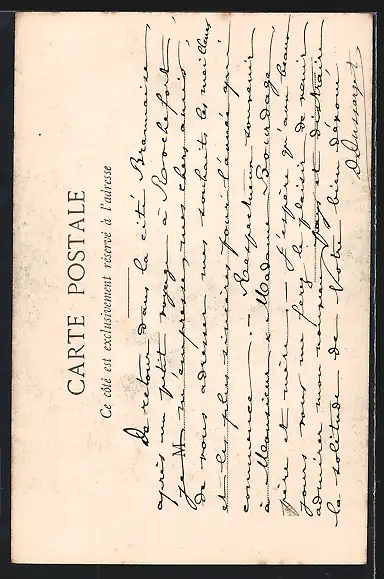 CARTE POSTALE
Ce côté est exclusivement réservé à l'adresse
De retour dans la cité Bramaise
après un petit voyage à Rochefort
je m'empresse, mes chers amis
de vous adresser mes souhaits les meilleurs
et les plus sincères pour l'année qui
commence. — Respectueux souvenir
à Monsieur & Madame Bourdage
père et mère. — J'espère qu'aux beaux
jours vous me ferez le plaisir de venir
admirer mon pays et distraire
la solitude de Votre bien dévoué